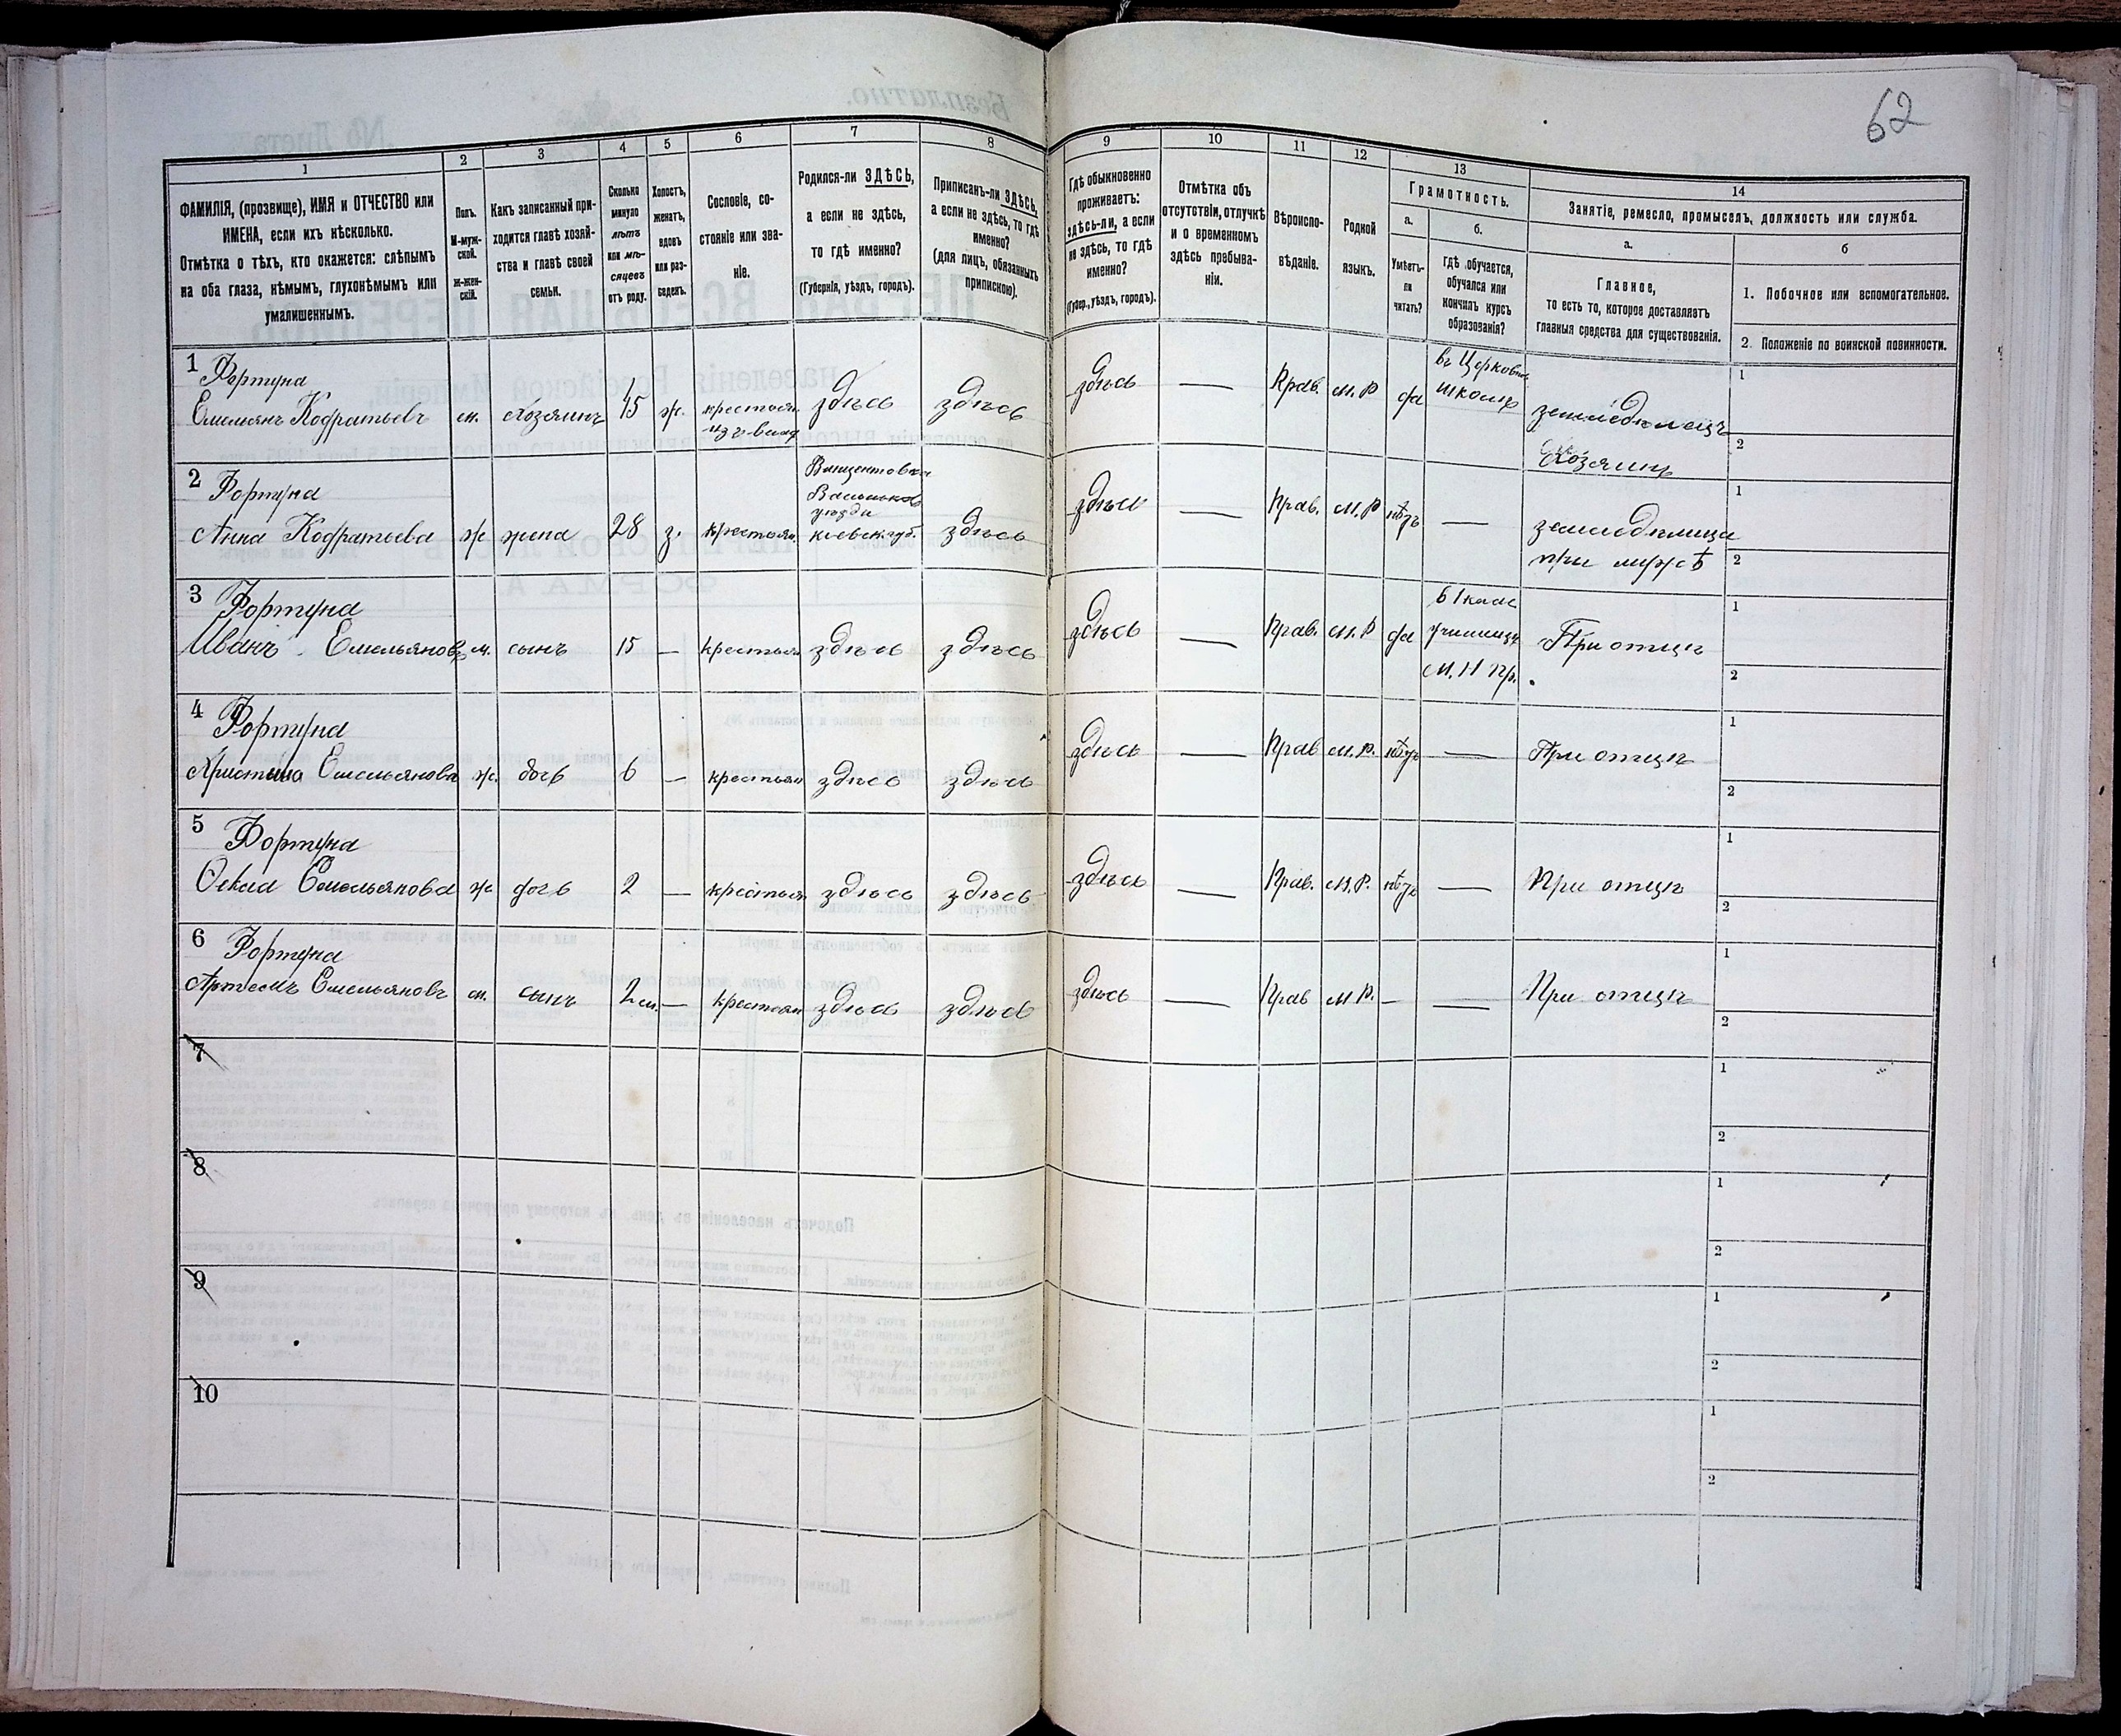 62
1 2 3 4 5 6 7 8 9 10 11 12 13 14
ФАМИЛІЯ, (прозвище), ИМЯ и ОТЧЕСТВО или
ИМЕНА, если ихъ нѣсколько.
Отмѣтка о тѣхъ, кто окажется: слѣпымъ
на оба глаза, нѣмымъ, глухонѣмымъ или
умалишеннымъ.
Полъ.
М-муж-
ской.
Ж-жен-
скій.
Какъ записанный при-
ходится главѣ хозяй-
ства и главѣ своей
семьи.
Сколько
минуло
лѣтъ
или мѣ-
сяцевъ
отъ роду.
Холостъ,
женатъ,
вдовъ
или раз-
веденъ.
Сословіе, со-
стояніе или зва-
ніе.
Родился-ли ЗДѢСЬ,
а если не здѣсь,
то гдѣ именно?
(Губернія, уѣздъ, городъ).
Приписанъ-ли ЗДѢСЬ,
а если не здѣсь, то гдѣ
именно?
(для лицъ, обязанныхъ
припискою).
Гдѣ обыкновенно
проживаетъ:
здѣсь-ли, а если
не здѣсь, то гдѣ
именно?
(Губер., уѣздъ, городъ).
Отмѣтка объ
отсутствіи, отлучкѣ
и о временномъ
здѣсь пребыва-
ніи.
Вѣроиспо-
вѣданіе.
Родной
языкъ.
Грамотность.
а.
Умѣетъ-
ли
читать?
б.
гдѣ обучается,
обучался или
кончилъ курсъ
образованія?
Занятіе, ремесло, промыселъ, должность или служба.
а.
Главное,
то есть то, которое доставляетъ
главныя средства для существованія.
б
1. Побочное или вспомогательное.
2. Положеніе по воинской повинности.
1 Фортуна
Емельянъ Кодратьевъ м. хозяинъ 45 ж. крестьян. здѣсь здѣсь здѣсь — Прав. М. Р да въ Церковн. школѣ земледѣлецъ 1
2
хозяинъ
2 Фортуна
Анна Кодратьева ж жена 28 з. крестьян. Васильков. уѣзда кіевск. губ. здѣсь здѣсь — Прав. М. Р нѣтъ — земледѣлица 1
при мужѣ 2
3 Фортуна
Иванъ Емельяновъ м. сынъ 15 — крестьян здѣсь здѣсь здѣсь — Прав. М. Р да в 1 клас училищѣ М. Н пр. При отцѣ 1
2
4 Фортуна
Христина Емельянова ж. дочь 6 — крестьян здѣсь здѣсь здѣсь — Прав М. Р. нѣтъ — При отцѣ 1
2
5 Фортуна
Емельянова ж дочь 2 — крестьян здѣсь здѣсь здѣсь — Прав. М. Р. нѣтъ — При отцѣ 1
2
6 Фортуна
Артемъ Емельяновъ м. сынъ 2 м. — крестьян здѣсь здѣсь здѣсь — Прав М. Р. — — При отцѣ 1
2
7 1
2
8 1
2
9 1
2
10 1
2